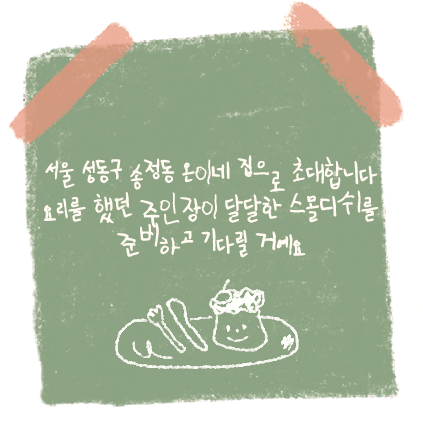 서울 성동구 송정동 온이네 집으로 초대합니다
요리를 했던 주인장이 달달한 스몰디쉬를
준비하고 기다릴 거예요